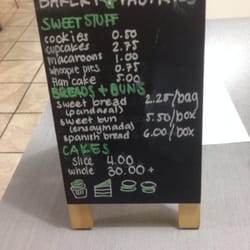 BAKERY + PASTRIES
SWEET STUFF
cookies 0.50
cupcakes 2.75
macaroons 1.00
whoopie pies 0.75
flan cake 5.00
BREADS + BUNS
sweet bread 2.25/bag
(pandasal)
sweet bun 5.50/box
(ensaymada)
spanish bread 6.00/box
CAKES
slice 4.00
whole 30.00+